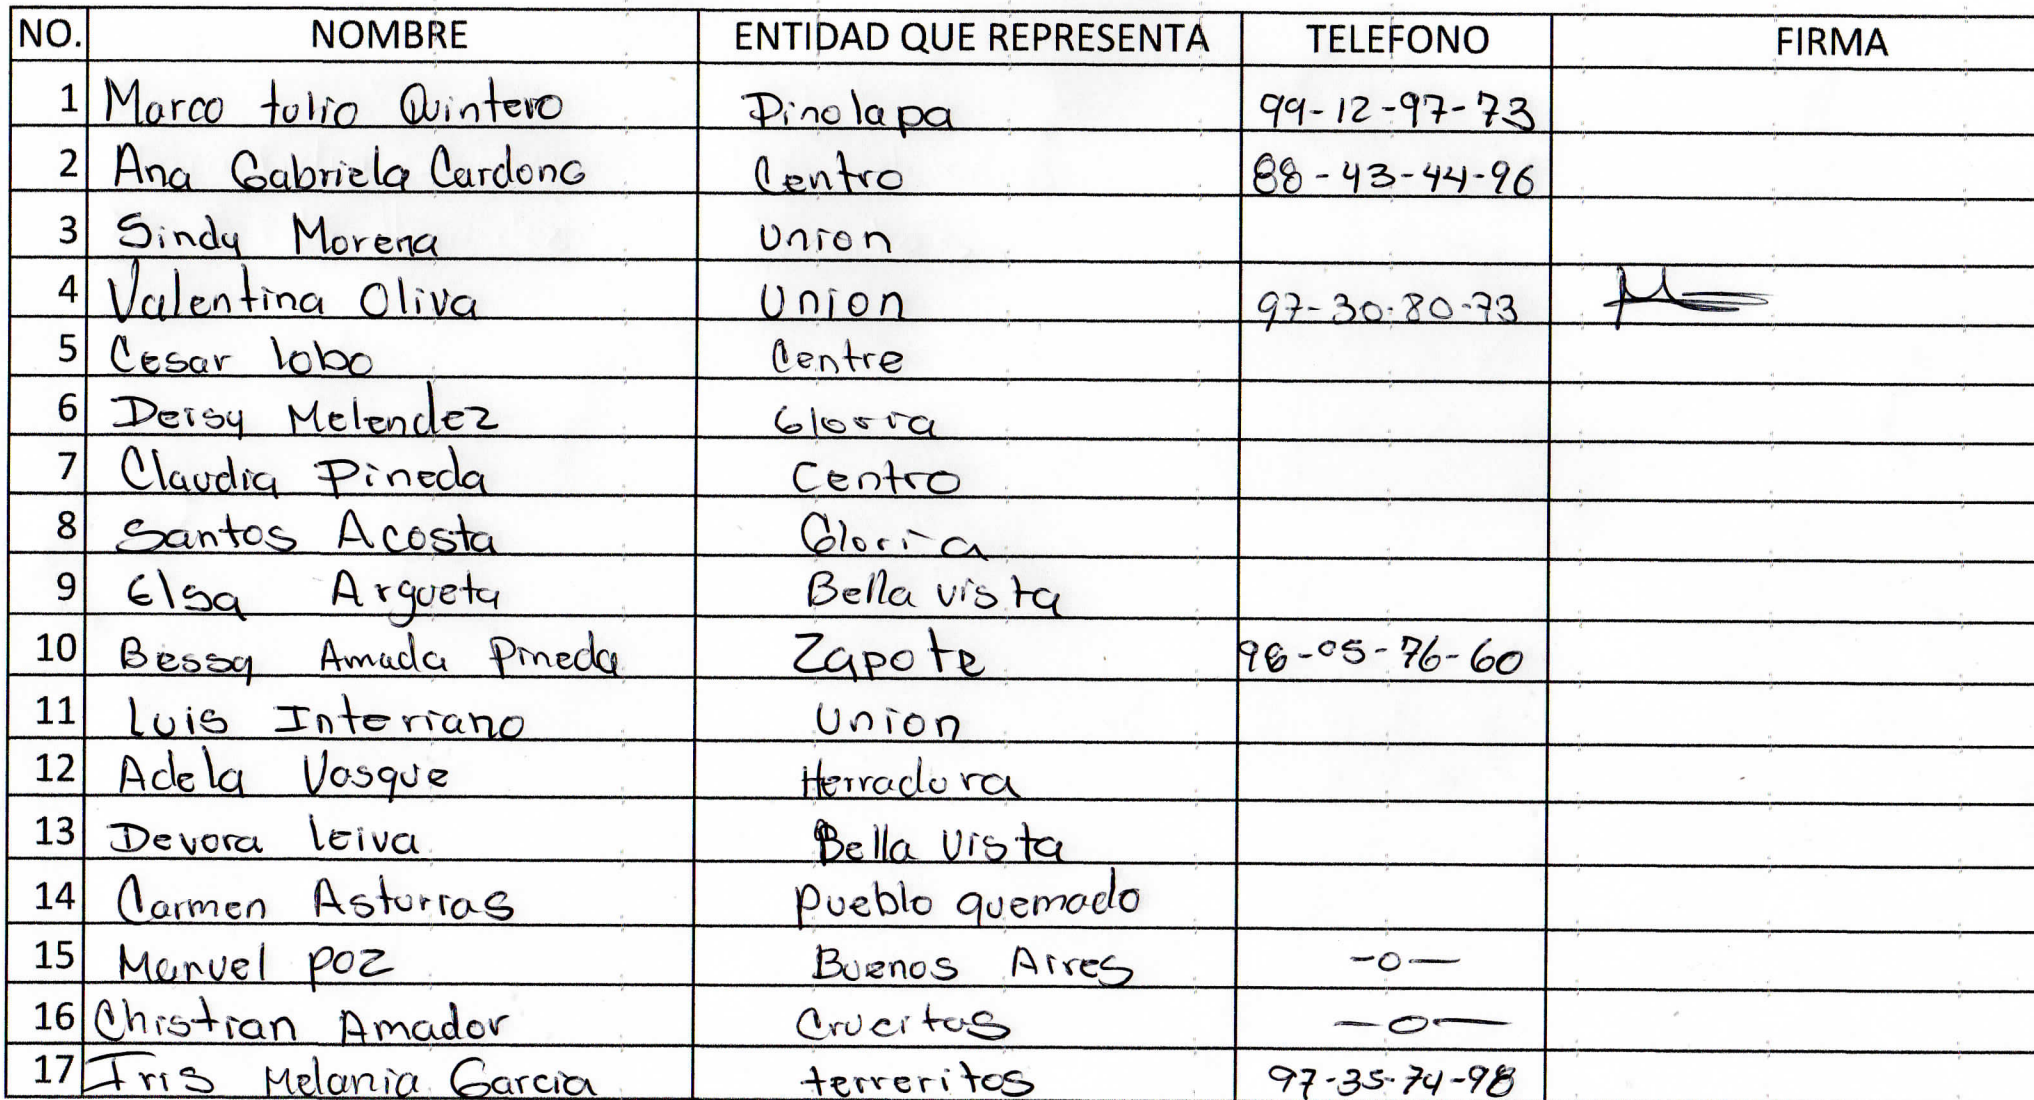 NO. NOMBRE ENTIDAD QUE REPRESENTA TELEFONO FIRMA
1 Marco tulio Quintero Pinolapa 99-12-97-73
2 Ana Gabriela Cardona Centro 88-43-44-96
3 Sindy Morena Union
4 Valentina Oliva Union 97-30-80-73
5 Cesar lobo Centre
6 Deisy Melendez Gloria
7 Claudia Pineda Centro
8 Santos Acosta Gloria
9 Elsa Argueta Bella vista
10 Bessy Amada Pineda Zapote 98-05-76-60
11 Luis Interiano Union
12 Adela Vasque Herradura
13 Devora leiva Bella Vista
14 Carmen Asturias Pueblo quemado
15 Manuel poz Buenos Aires -o-
16 Christian Amador Crucitas -o-
17 Iris Melania Garcia terreritos 97-35-74-98